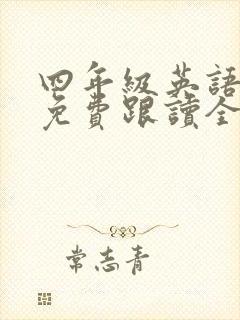 四年級英語
免費跟讀全
常志青